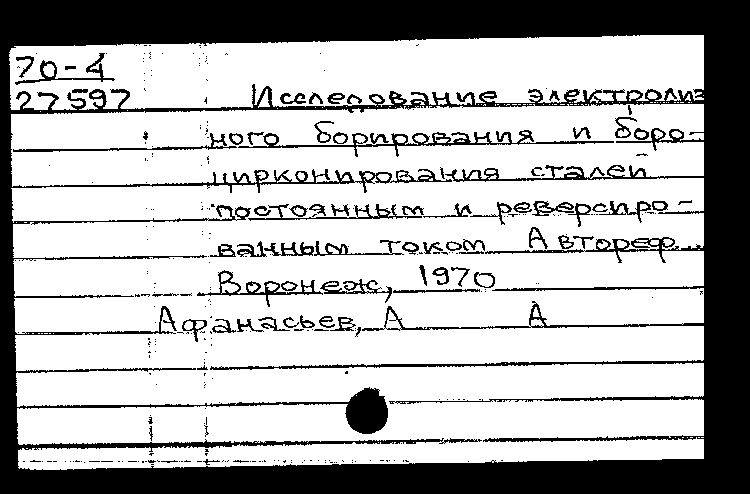 70-4
27597
Исследование электролиз
ного борирования и боро-
цирконирования сталей
постоянным и реверсиро-
ванным током Автореф...
Воронеж, 1970
Афанасьев, А А